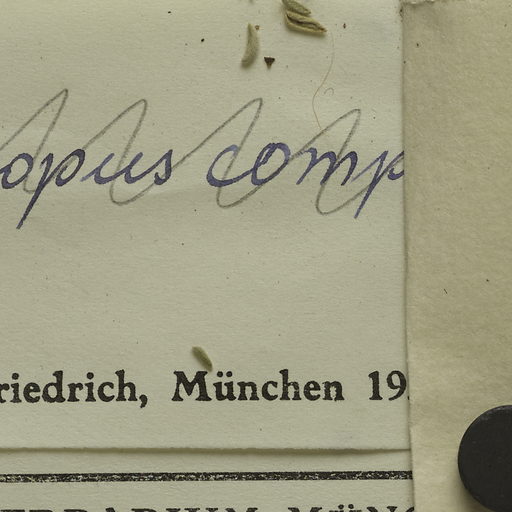 opus comp
riedrich, München 19
HERBARIUM MÜNC